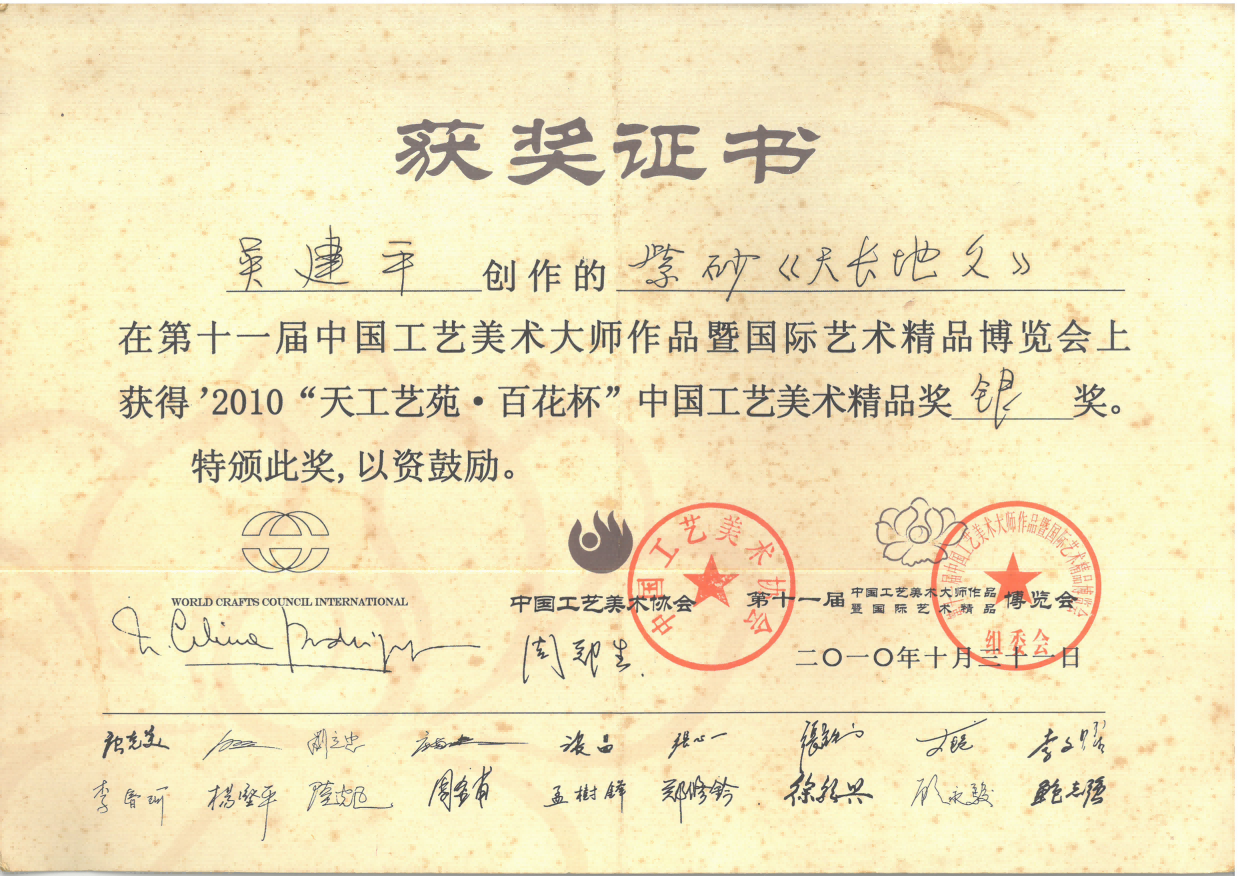 获奖证书
吴建平创作的紫砂《天长地久》
在第十一届中国工艺美术大师作品暨国际艺术精品博览会上
获得'2010“天工艺苑·百花杯”中国工艺美术精品奖银奖。
特颁此奖,以资鼓励。
WORLD CRAFTS COUNCIL INTERNATIONAL
中国工艺美术协会
中国工艺美术协会
第十一届中国工艺美术大师作品暨国际艺术精品博览会
第十一届中国工艺美术大师作品暨国际艺术精品博览会
组委会
二〇一〇年十月三十一日
张心一
杨坚平
孟树锋 郑修钤 徐绍兴 顾永骏 鲍志强